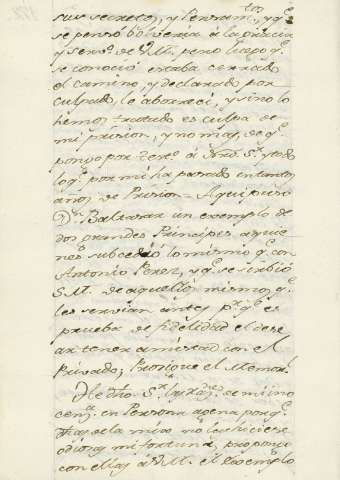 sus secretos, y Pensam.tos, y q.e
se pensó bolveria à la gracia
y serv.o de V. M. pero luego q.e
se conoció estaba cerrado
el camino, y declarado por
culpado, le aborreci, y si no lo
hemos tratado es culpa de
mi prision, y no mas, de q.e
pongo por test.o à Nro. S.r y todo
lo q.e por mi ha pasado in tantos
años de Prision = Aqui puso
D.n Baltasar un exemplo de
dos grandes Principes a quie
nes subcedió lo mismo q.e con
Antonio Perez, y q.e se sirbió
S. M. de aquellos mismos q.e
les servian antes p.r q.e es
prueba de fidelidad el dese
ar tener amistad con el
Privado; Prosigue el Memor.l
He dho S.r las raz.es de mi ino
cen.a en Persona agena porq.e
odiosa mi fortuna, propongo
con ellas à V. M. el Exemplo